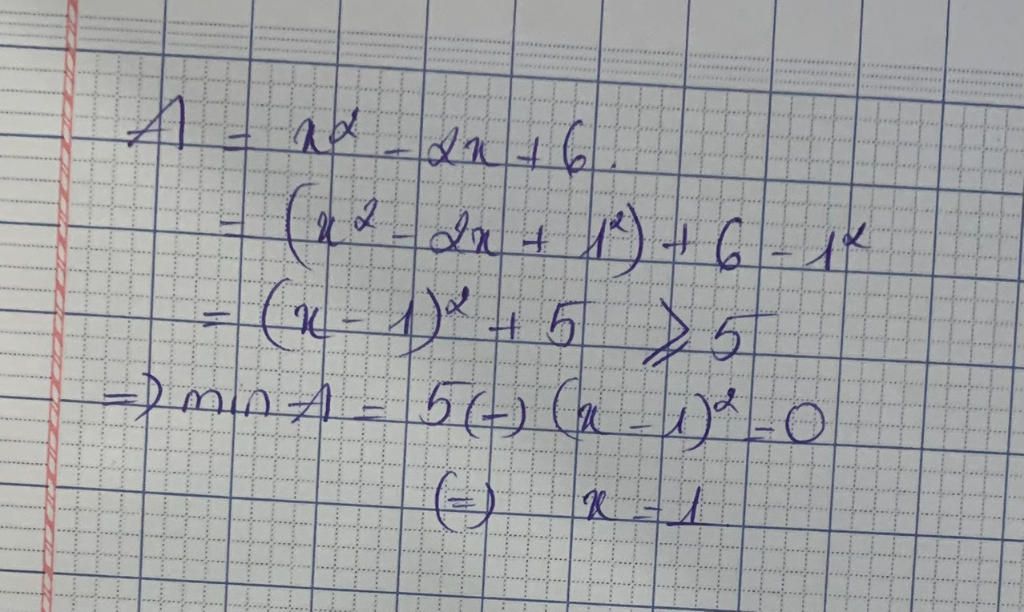 A = x² - 2x + 6.
= (x² - 2x + 1²) + 6 - 1²
= (x - 1)² + 5 ⩾ 5
=) min A = 5 (-) (x - 1)² = 0
(=) x = 1